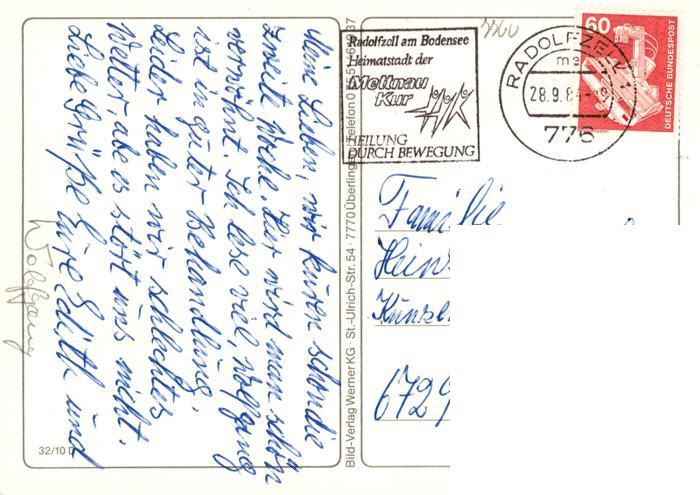 Meine Lieben, wir kuren schon die
zweite Woche. Hier wird man schön
verwöhnt. Ich lese viel, Wolfgang
ist in guter Behandlung.
Leider haben wir schlechtes
Wetter, aber es stört uns nicht.
Liebe Grüße Eure Edith und
Wolfgang
32/10 D
Bild-Verlag Werner KG · St.-Ulrich-Str. 54 · 7770 Überlingen
Radolfzell am Bodensee
Heimatstadt der
Mettnau
Kur
HEILUNG
DURCH BEWEGUNG
RADOLFZELL 1
28.9.84
776
60
DEUTSCHE BUNDESPOST
Familie
Hein
6729